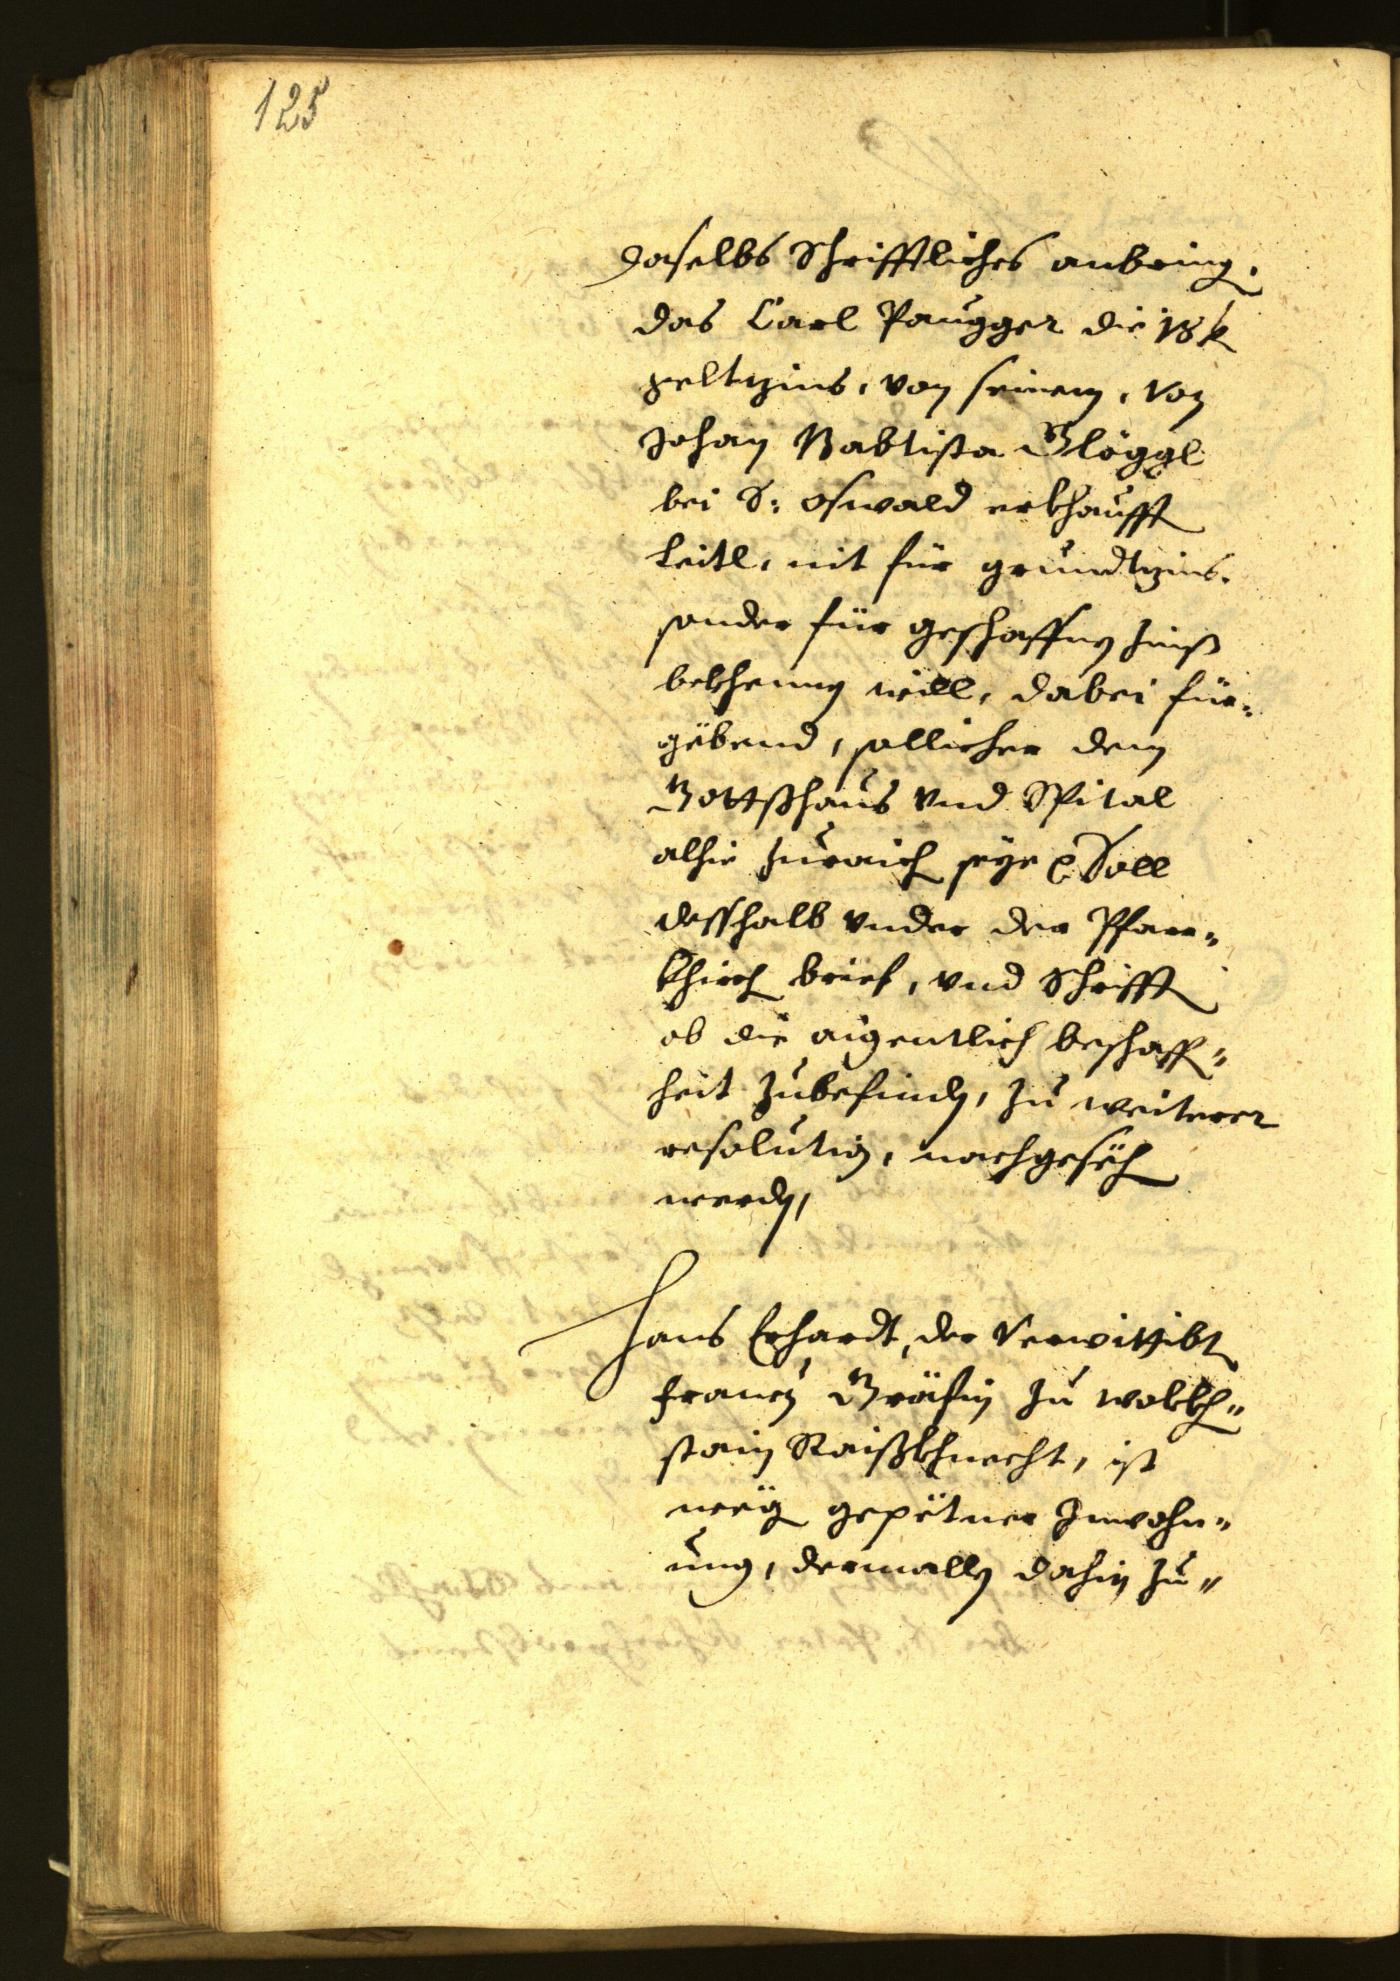 125
daselbs Schrifftliches anbring,
das Carl Paugger die 18 k
geltzins, von seinem, von
Johan Babtista Glöggl
bei S: Oswald erkhaufft
Leitl, nit für grundtzins.
sonder für geschaffnen Zinß
bekhennen will, dabei für„
gebend, sollicher dem
Gottßhaus vnd Spital
alhie zuraichen seye Soll
desshalb vnder der Pfarr„
khirchen brief, vnd Schrifften
ob die aigentlich beschaffen„
heit zubefinden, zu weiterer
resolution, nachgesehen
werden,
Hans Erhardt, der Verwittibten
frauen Gräfin zu wolkhen„
stain Raißkhnecht, ist
wegen gepetner Inwohn„
ung, dermallen dahin zu„